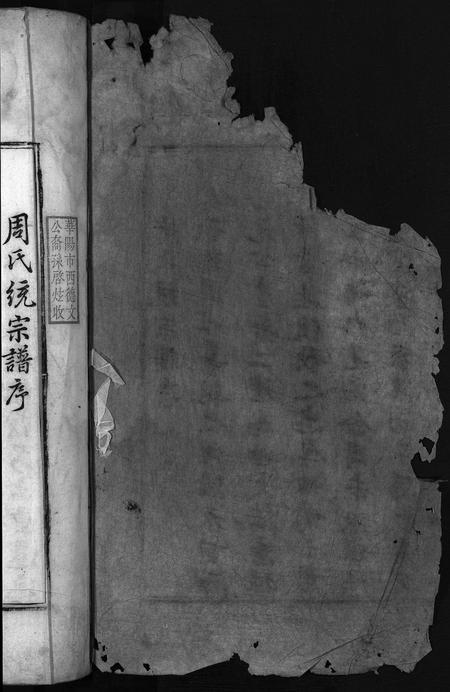 華陽市西德文
公裔孫啓灶收
周氏統宗譜序